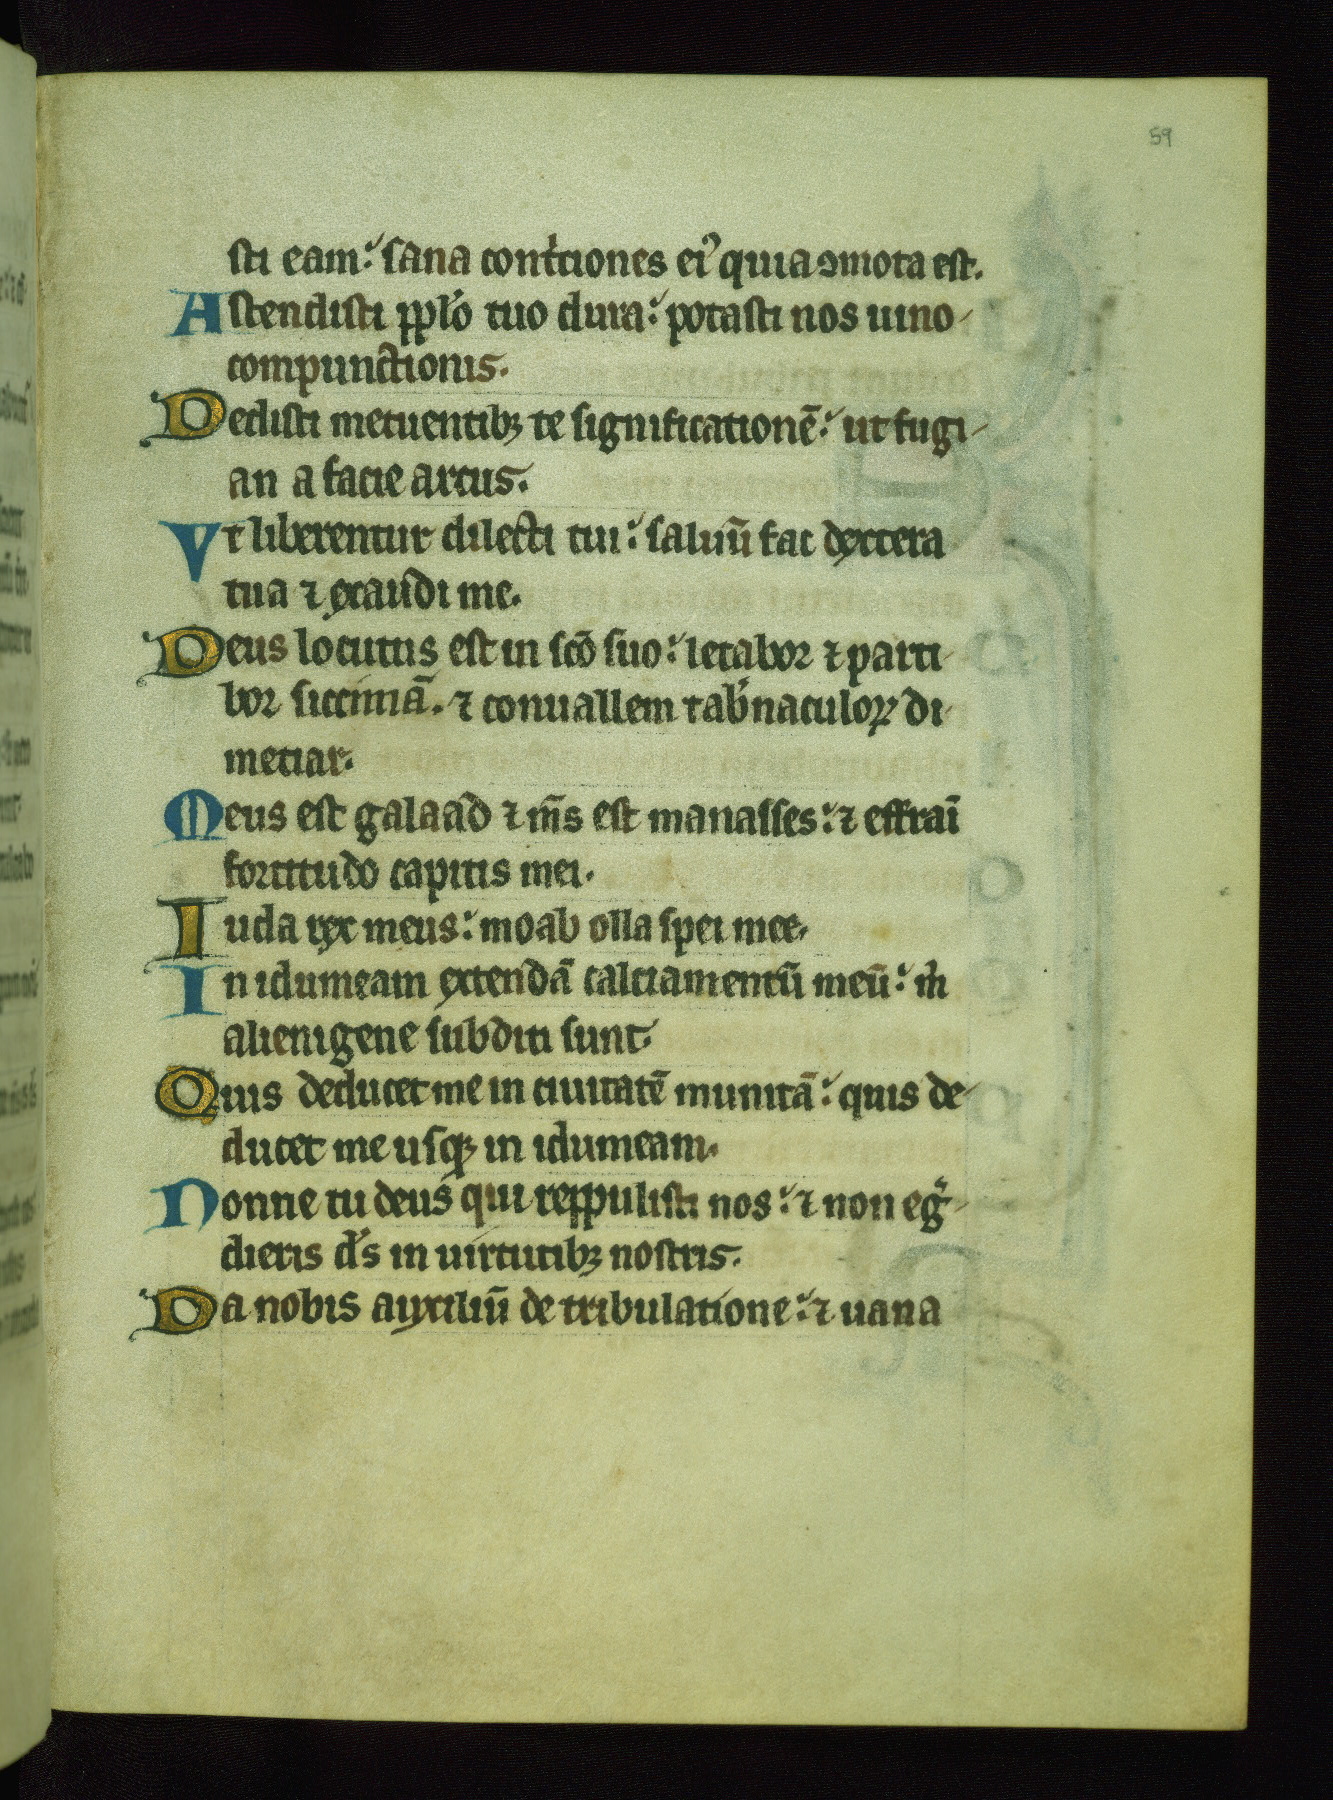 59
sti eam: sana contͥciones eiꝰ quia ꝯmota est.
Astendisti ppl̓o tuo dura: potasti nos uino
compunctionis.
Dedisti metuentibꝫ te significationē: ut fugi
an a facie arcus.
Vt liberentur dilecti tui: saluū fac dextera
tua ⁊ exaudi me.
Deus locutus est in sc̄o suo: letabor ⁊ parti
bor siccimā. ⁊ conuallem tab̓naculoꝝ di
metiar.
Meus est galaad ⁊ m̄s est manasses: ⁊ effraī
fortitudo capitis mei.
Iuda rex meus: moab olla spei mee.
In idumeam extendā calciamentū meū: m̓
alienigene subditi sunt.
Quis deducet me in ciuitatē munitā: quis de
ducet me usqꝫ in idumeam.
Nonne tu deus qui reppulisti nos: ⁊ non egͣ
dieris d̓s in uirtutibꝫ nostris.
Da nobis auxiliū de tribulatione: ⁊ uana